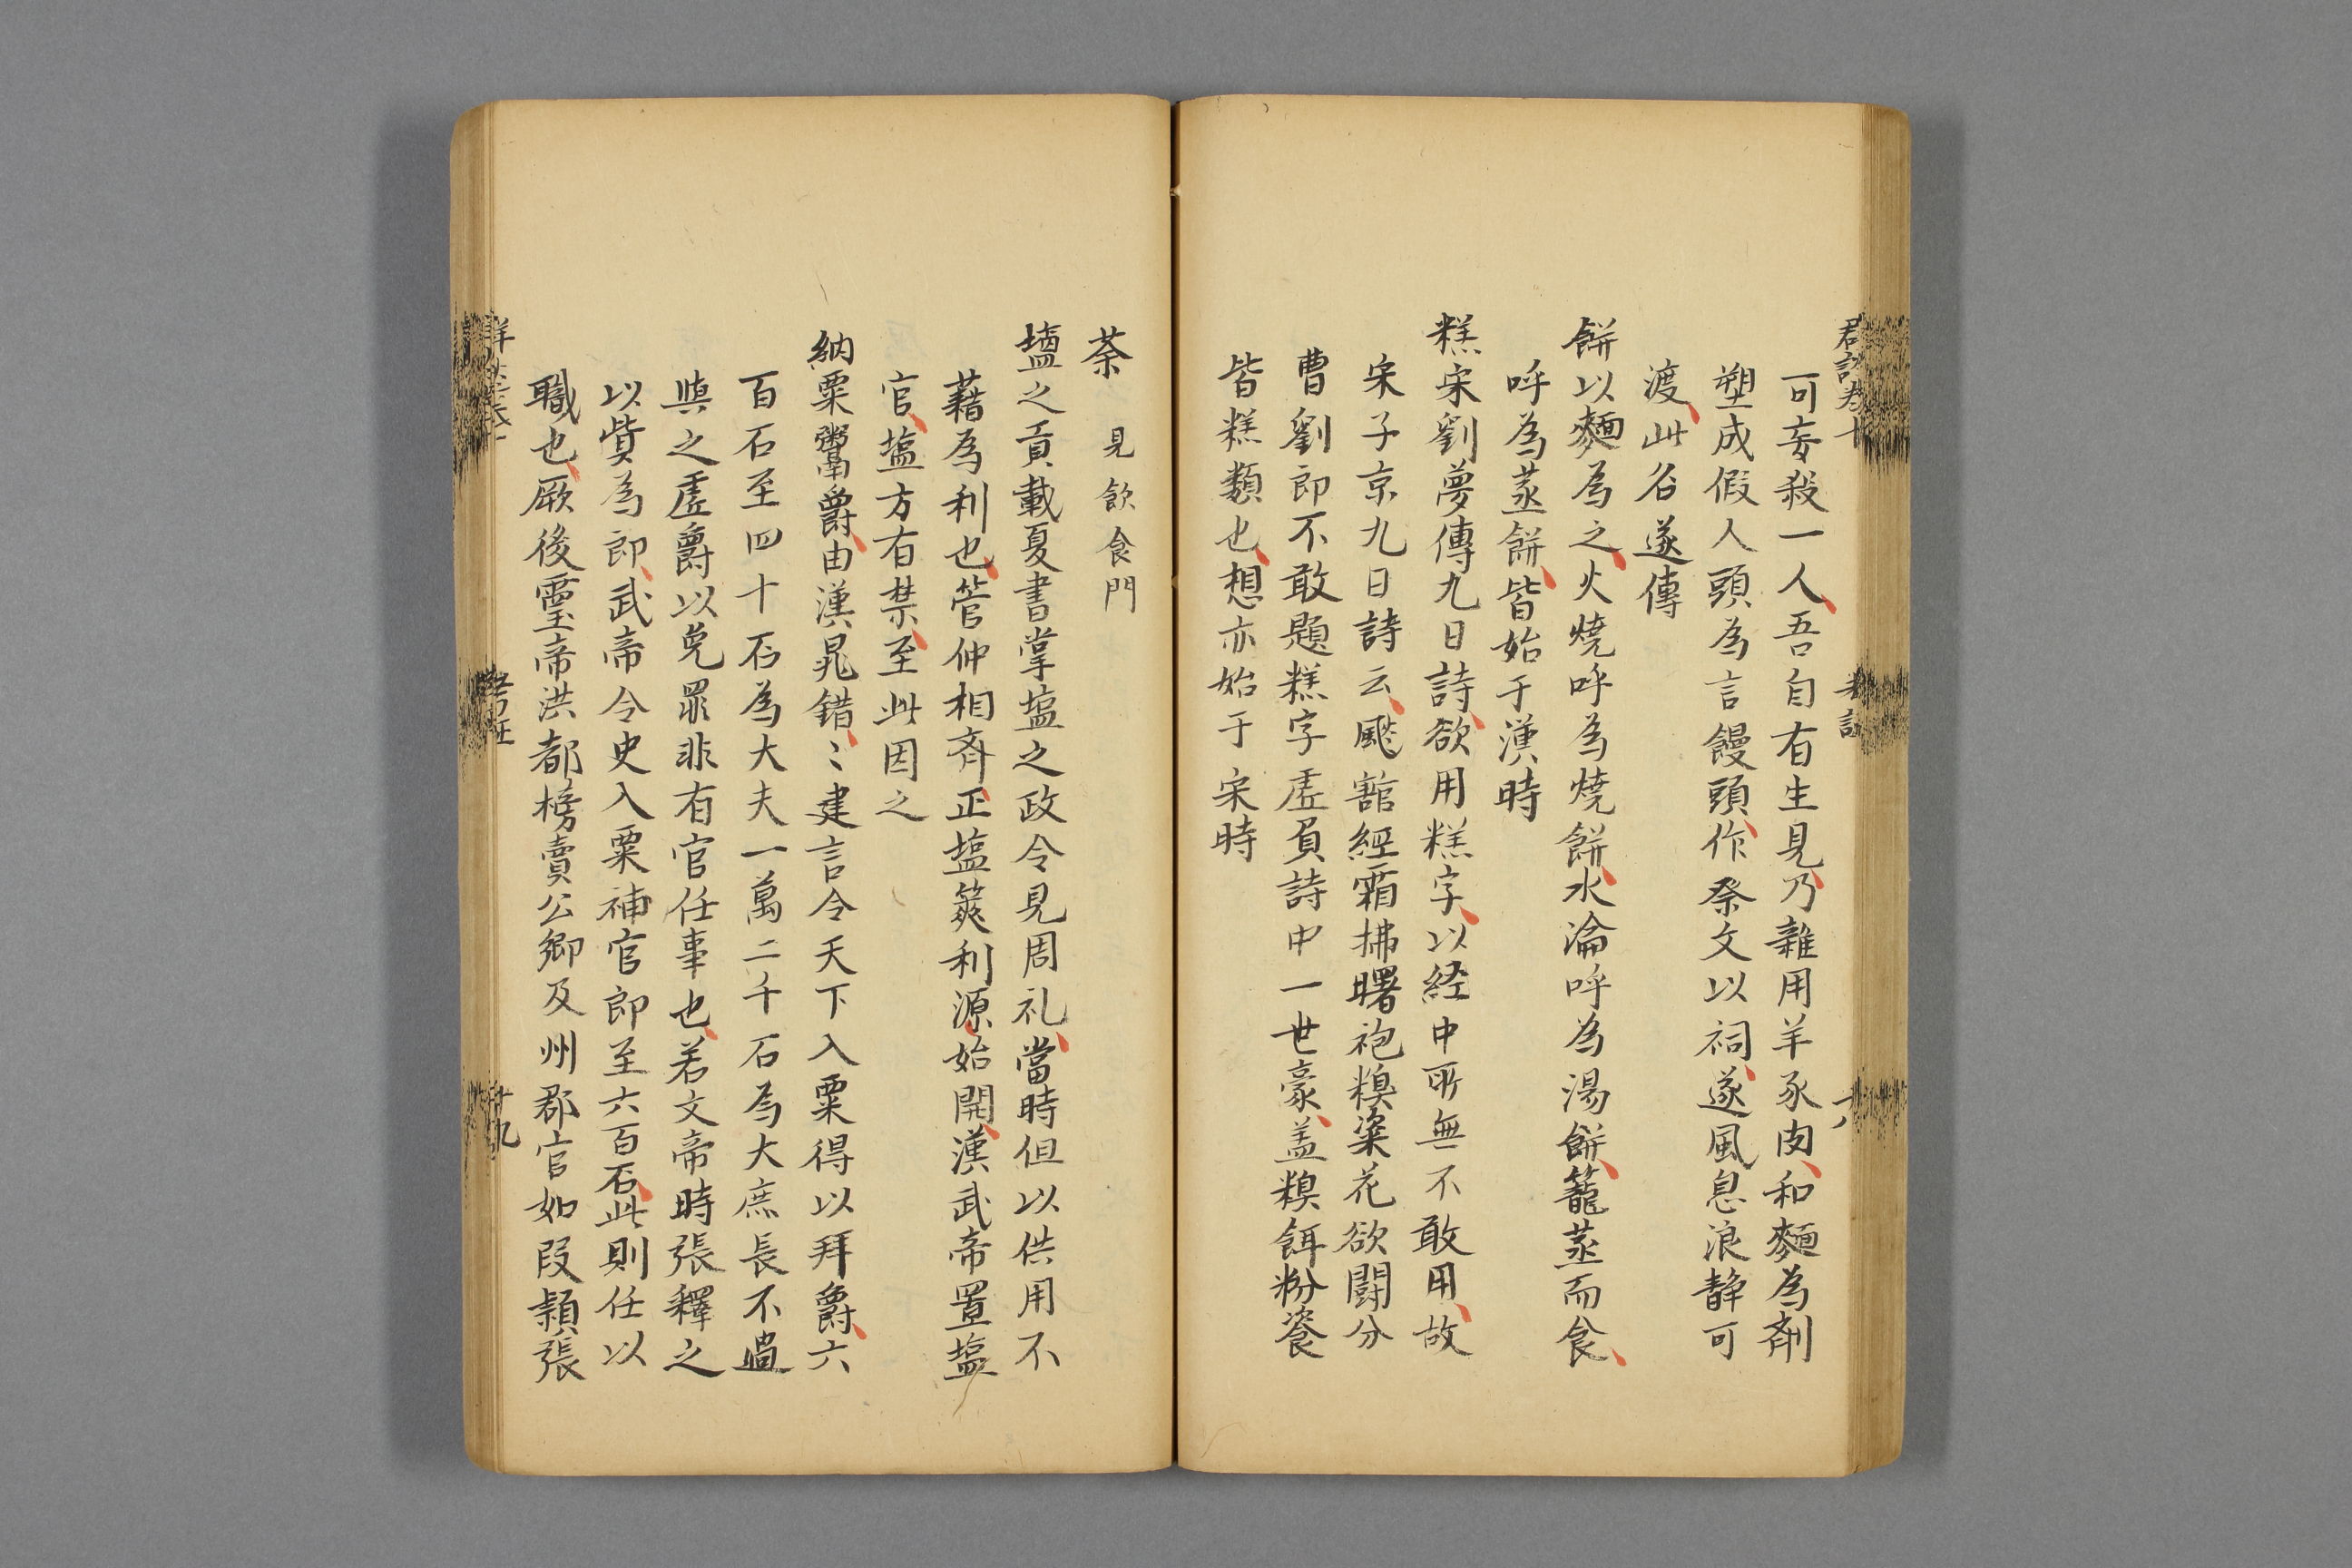 可妄殺一人吾自有生見乃雜用羊豕肉和麵為劑
塑成假人頭為言饅頭作祭文以祠遂風息浪静可
渡此名遂傳
餅以麵為之火燒呼為燒餅水淪呼為湯餅籠蒸而食
呼為蒸餅皆始于漢時
糕宋劉夢傳九日詩欲用糕字以経中所無不敢用故
宋子京九日詩云飈舘經霜拂曙袍糗粢花欲闘分
曹劉郎不敢題糕字虗負詩中一世豪盖糗餌粉餈
皆糕類也想亦始于宋時
茶 見飲食門
塩之貢載夏書掌塩之政令見周礼當時但以供用不
藉為利也管仲相齊正塩筴利源始開漢武帝置塩
官塩方有禁至此因之
納粟鬻爵由漢晁錯〻建言令天下入粟得以拜爵六
百石至四十石為大夫一萬二千石為大庶長不過
與之虗爵以免罪非有官任事也若文帝時張釋之
以貲為郎武帝令史入粟補官郎至六百石此則任以
職也厥後靈帝洪都榜賣公卿及州郡官如段潁張
十九